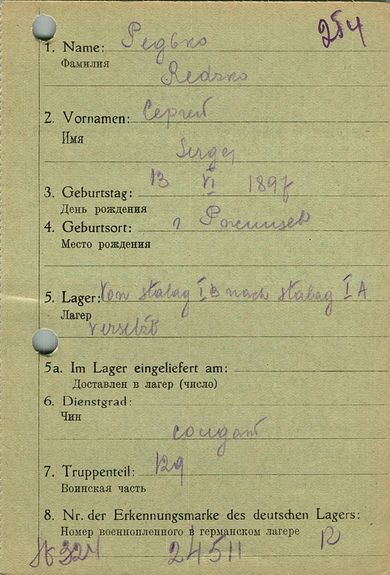 254
1. Name: Редько
Фамилия
Redsko
2. Vornamen: Сергей
Имя
Sergej
3. Geburtstag: 13 VI 1897
День рождения
4. Geburtsort: г
Место рождения
5. Lager: Von Stalag I B nach Stalag I A
Лагер
versetzt
5a. Im Lager eingeliefert am:
Доставлен в лагер (число)
6. Dienstgrad:
Чин
солдат
7. Truppenteil: 129
Воинская часть
8. Nr. der Erkennungsmarke des deutschen Lagers:
Номер военнопленного в германском лагере
24511